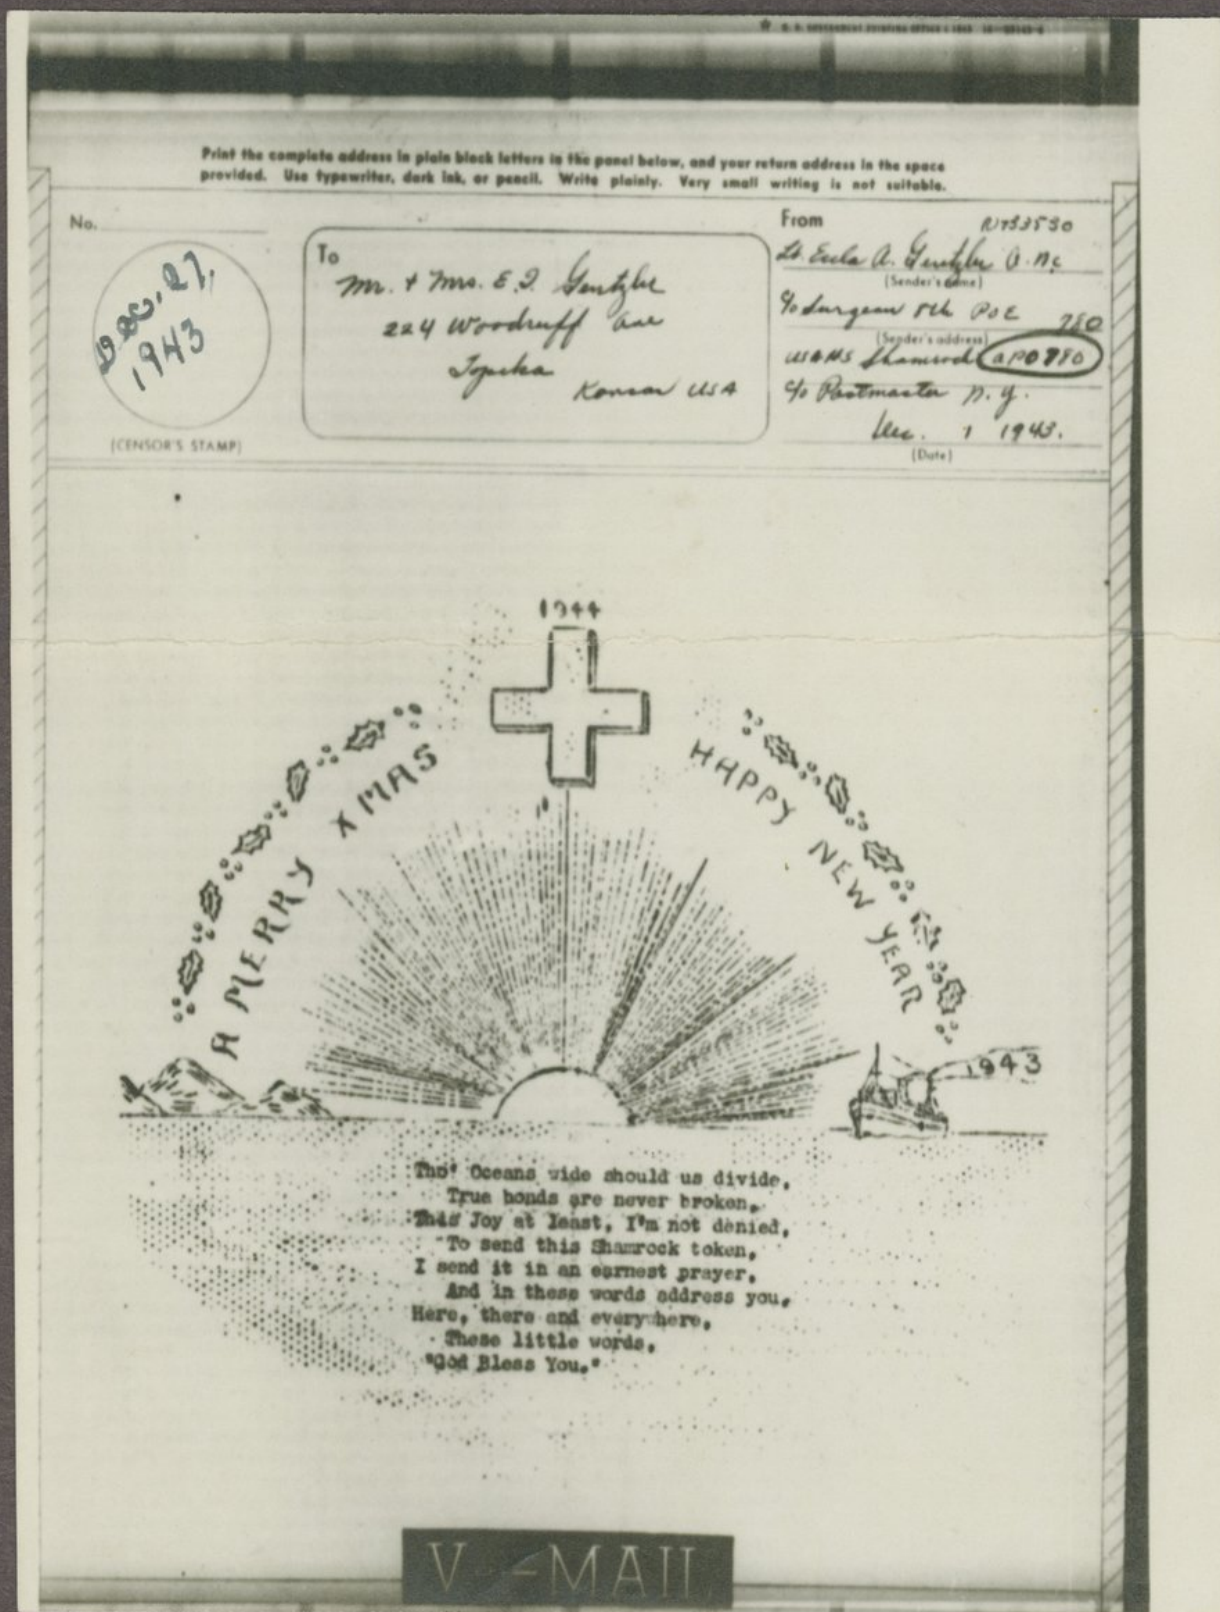 Print the complete address in plain block letters in the panel below, and your return address in the space
provided. Use typewriter, dark ink, or pencil. Write plainly. Very small writing is not suitable.
No.
Dec. 27,
1943
(CENSOR'S STAMP)
To
Mr. + Mrs. E. I. Gentzler
224 Woodruff Ave
Topeka
Kansas USA
From
N733530
Lt. Eula A. Gentzler A.N.C
(Sender's name)
c/o Surgeon 8th POE 780
(Sender's address)
USAHS Shamrock APO 780
c/o Postmaster N.Y.
Dec. 1 1943.
(Date)
1944
A MERRY XMAS
HAPPY NEW YEAR
1943
Tho' Oceans wide should us divide,
True bonds are never broken,
This Joy at least, I'm not denied,
To send this Shamrock token,
I send it in an earnest prayer,
And in these words address you,
Here, there and everywhere,
These little words,
"God Bless You."
V-MAIL